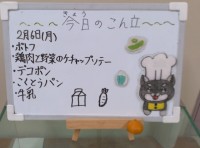 ～～～今日のこん立～～～
きょう
2月6日(月)
・ポトフ
・鶏肉と野菜のケチャップソテー
・デコポン
・こくとうパン
・牛乳